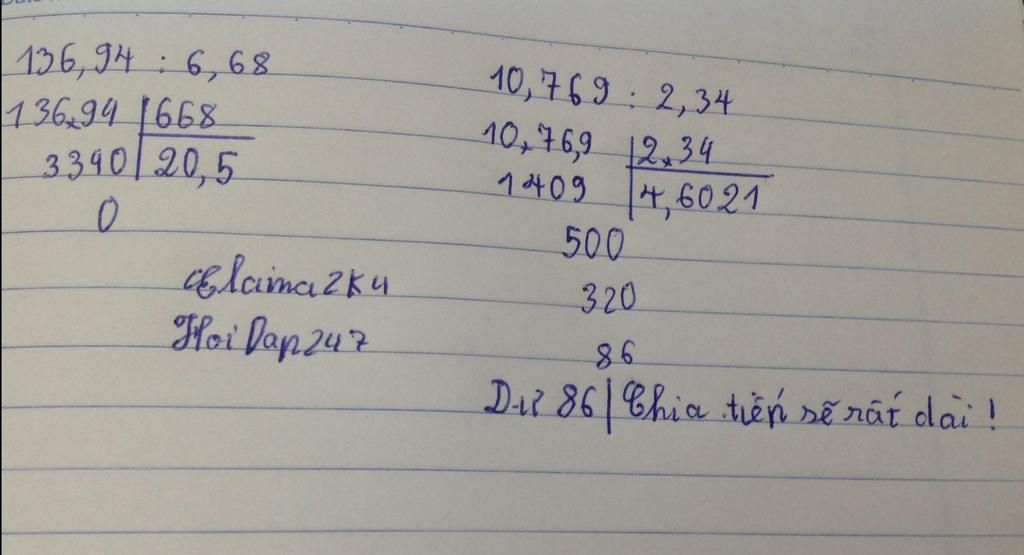 136,94 : 6,68
136,94 668
3340 20,5
0
10,769 : 2,34
10,76,9 2,34
1409 4,6021
500
320
86
Dư 86 | Chia tiến sẽ rất dài !
Elaina2K4
HoiDap247